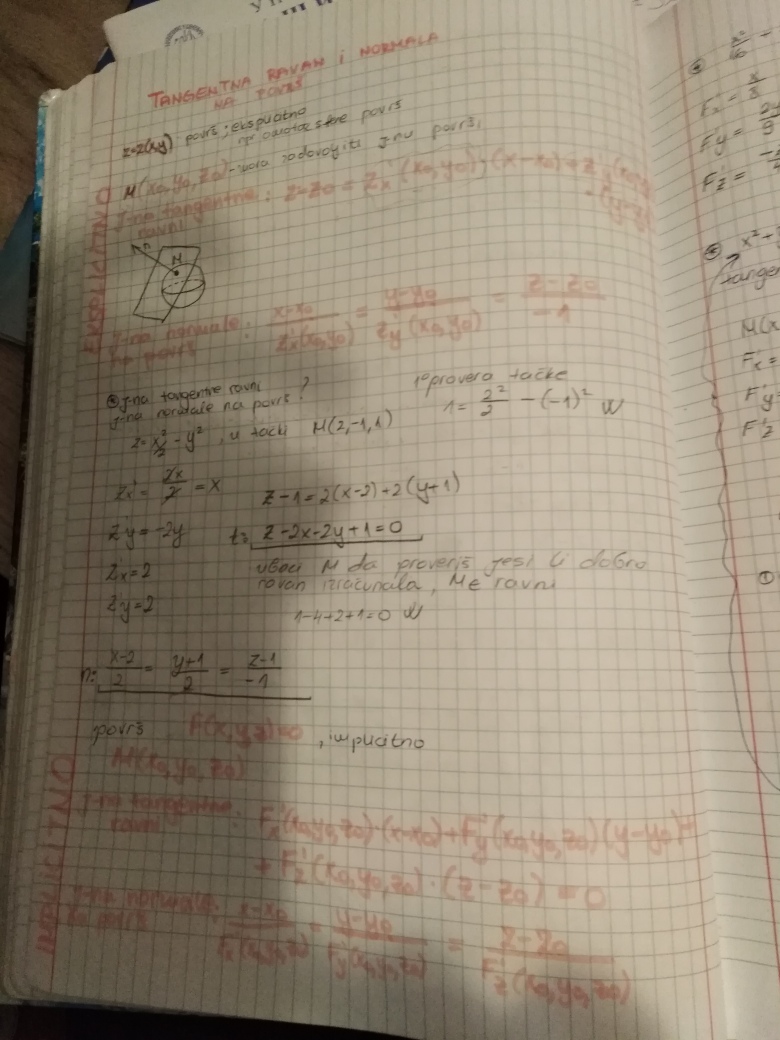 TANGENTNA RAVAN i NORMALA
NA POVRŠ
z=z(x,y) površ; eksplicitno
površ
M(x₀,y₀,z₀)-mora zadovoljiti j-nu površi
j-na tangentne ravni : z-z₀ = z'ₓ(x₀,y₀)·(x-x₀)+z'ᵧ(x₀,y₀)
·(y-y₀)
EKSPLICITNO
n
M
j-na normale na površ : (x-x₀)/(z'ₓ(x₀,y₀)) = (y-y₀)/(z'ᵧ(x₀,y₀)) = (z-z₀)/(-1)
j-na tangentne ravni
j-na normale na površ ?
z=x²/2-y², u tački M(2,-1,1)
1° provera tačke
1=2²/2-(-1)²
zₓ'=2x/2=x
z'y=-2y
zₓ=2
zy=2
z-1=2(x-2)+2(y+1)
t: z-2x-2y+1=0
ubaci M da proveriš jesi li dobro
ravan izračunala, M∈ravni
1-4+2+1=0
n: (x-2)/2 = (y+1)/2 = (z-1)/(-1)
površ F(x,y,z)=0, implicitno
M(x₀,y₀,z₀)
IMPLICITNO
j-na tangentne ravni : F'ₓ(x₀,y₀,z₀)·(x-x₀)+F'ᵧ(x₀,y₀,z₀)(y-y₀)+
+F'z(x₀,y₀,z₀)·(z-z₀)=0
j-na normale na površ : (x-x₀)/(F'ₓ(x₀,y₀,z₀)) = (y-y₀)/(F'ᵧ(x₀,y₀,z₀)) = (z-z₀)/(F'z(x₀,y₀,z₀))
Fₓ'=
Fy'=
Fz'=
x²+
tangen
M(x
F'ₓ=
F'y=
F'z